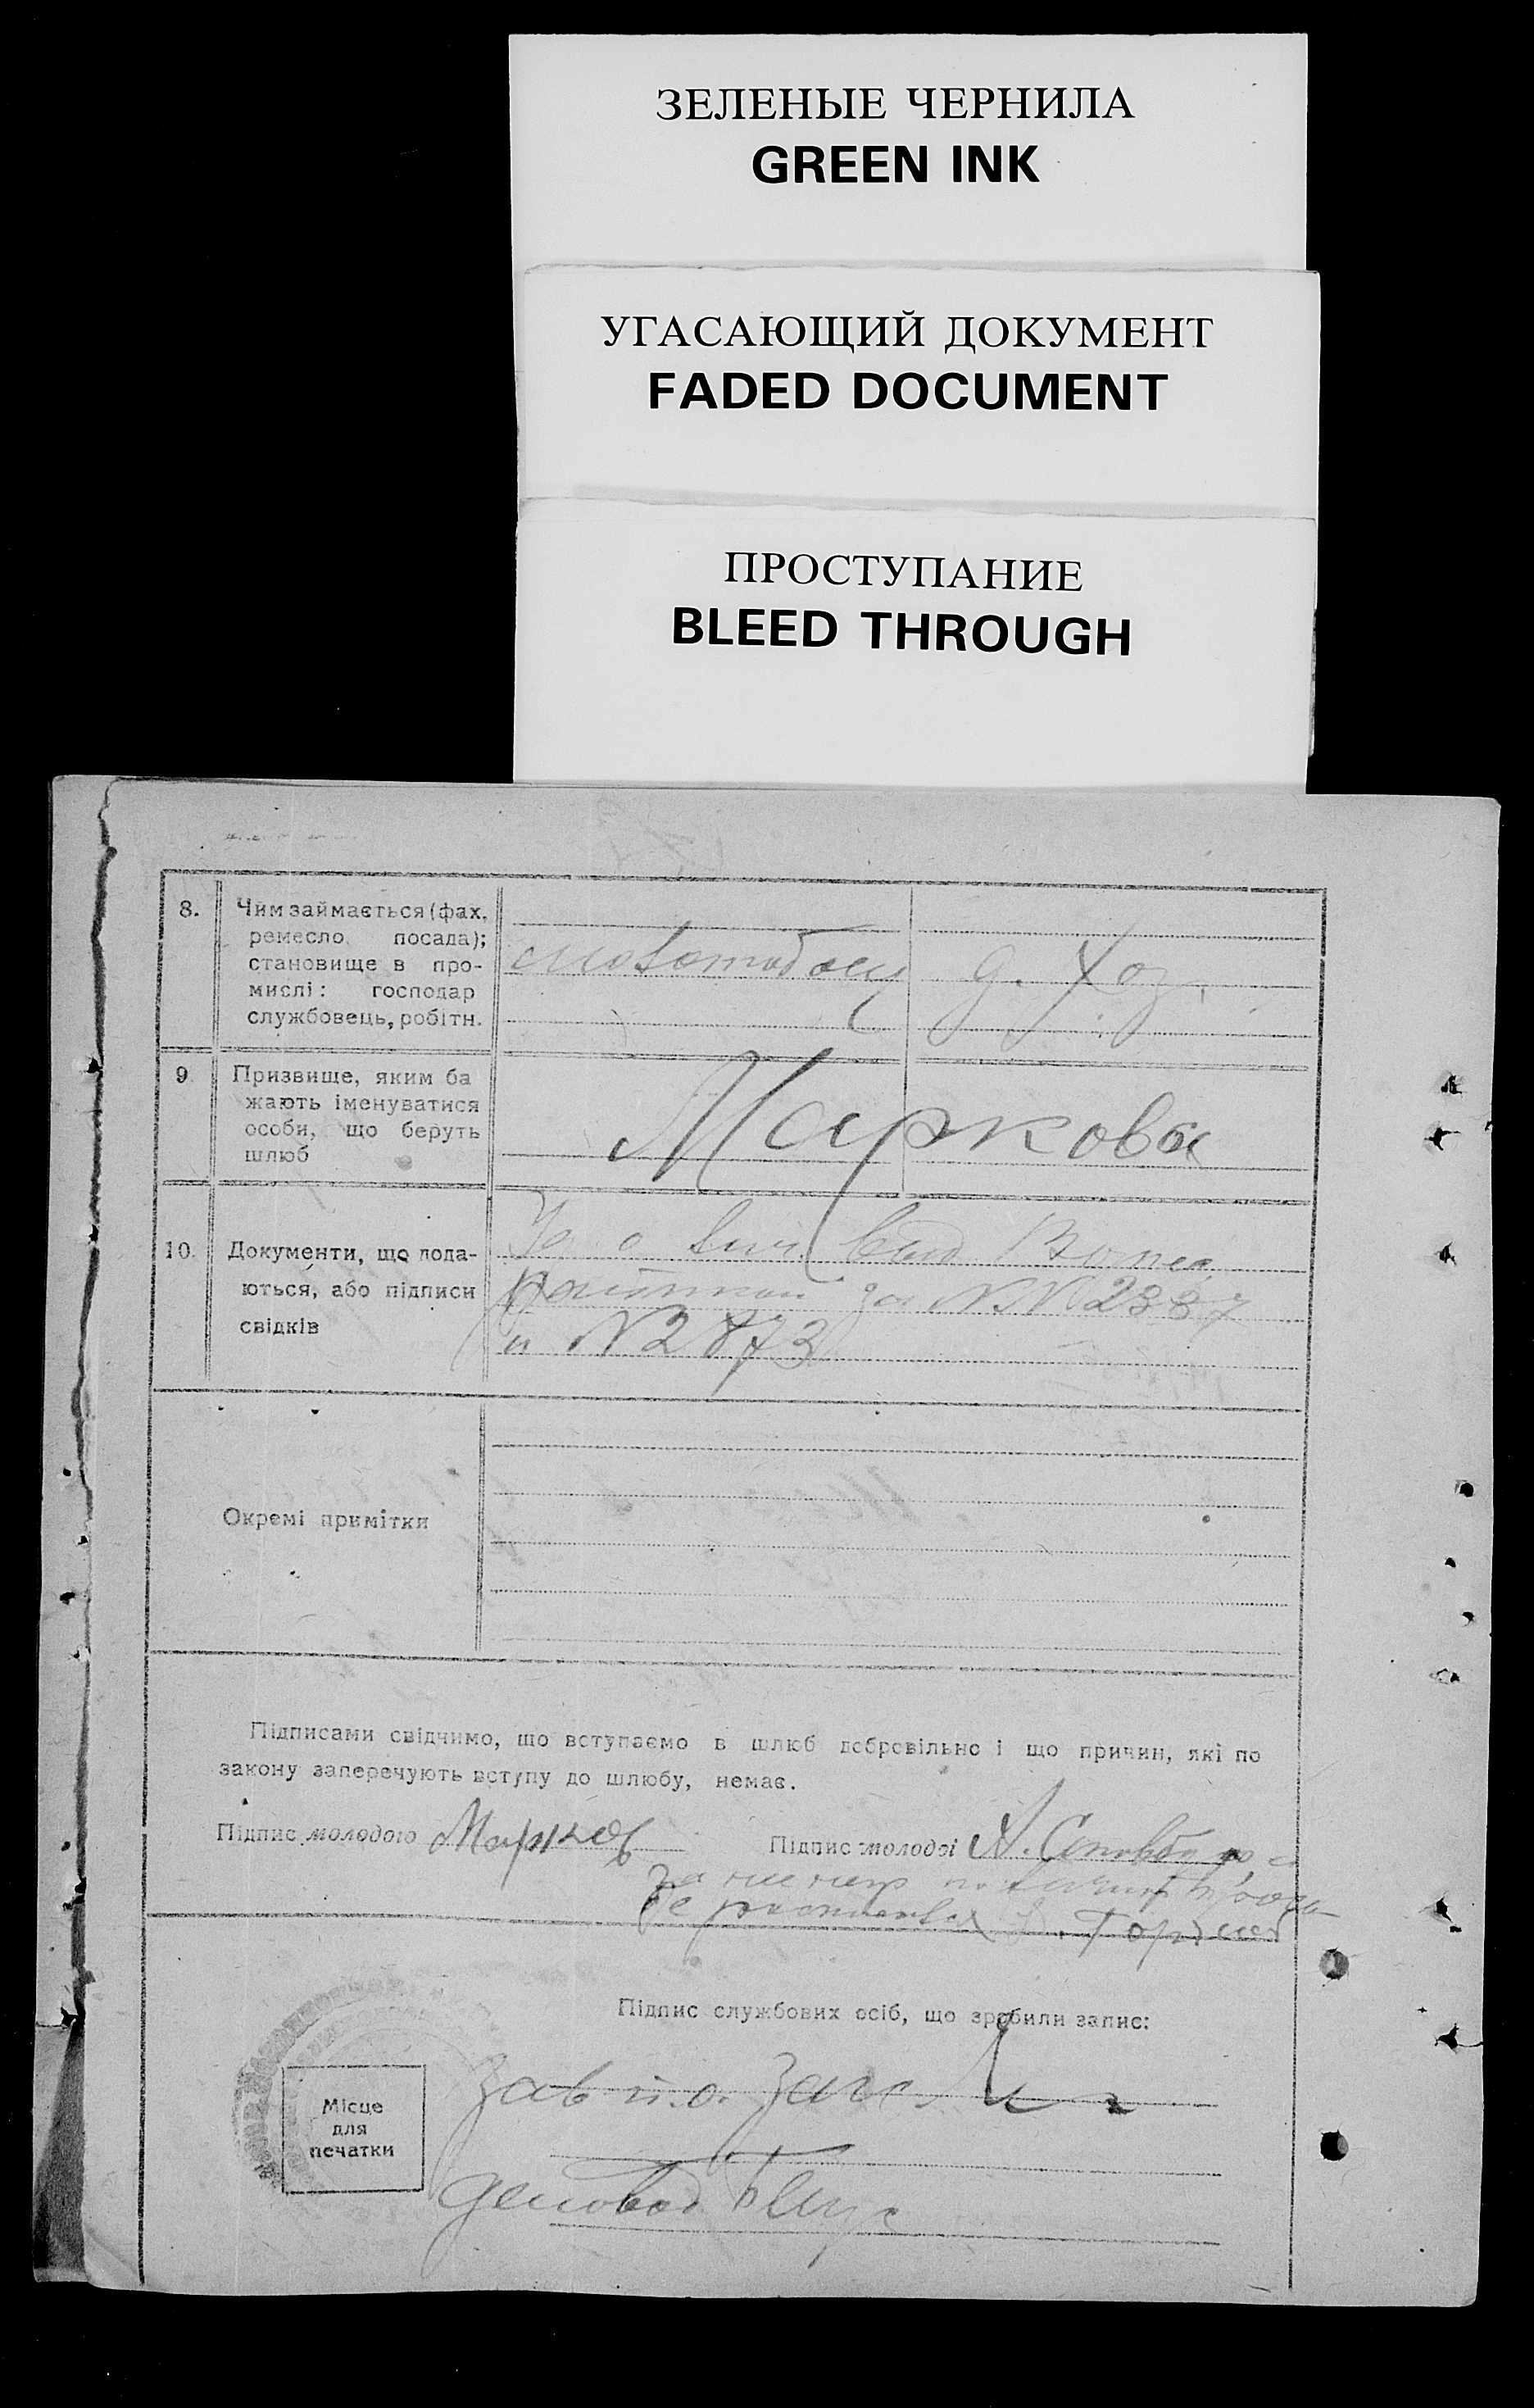 ЗЕЛЕНЫЕ ЧЕРНИЛА
GREEN INK
УГАСАЮЩИЙ ДОКУМЕНТ
FADED DOCUMENT
ПРОСТУПАНИЕ
BLEED THROUGH
8. Чим займається (фах,
ремесло посада);
становище в про-
мислі: господар
службовець, робітн.
д. хоз.
9 Призвище, яким ба
жають іменуватися
особи, що беруть
шлюб
Маркова
10. Документи, що пода-
ються, або підписи
свідків
за NN 2387
и N 2873
Окремі примітки
Підписами свідчимо, що вступаємо в шлюб добровільно і що причин, які по
закону заперечують вступу до шлюбу, немає.
Підпис молодого Марков
Підпис молодої А.
Підпис службових осіб, що зробили запис:
Місце
для
печатки
Зав п.о. Загс
деловод